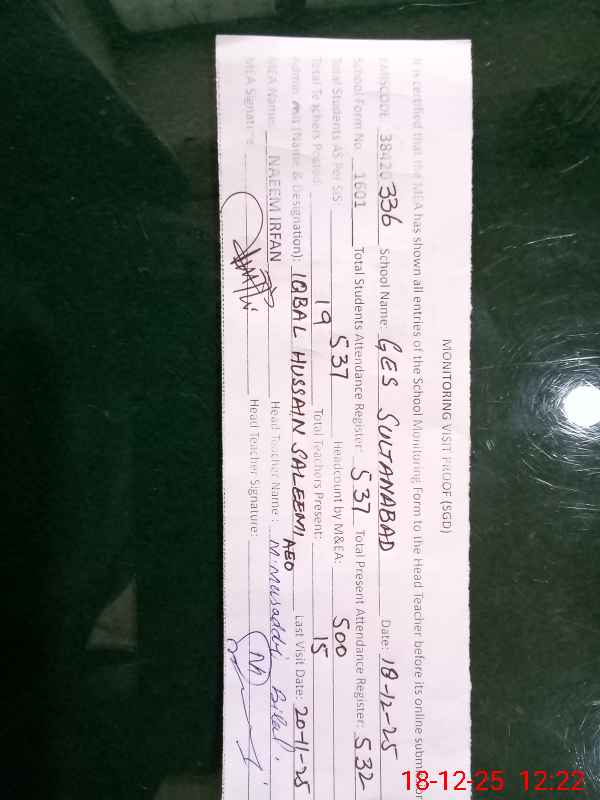 MONITORING VISIT PROOF (SGD)
It is certified that the MEA has shown all entries of the School Monitoring Form to the Head Teacher before its online
EMISCODE: 38420336 School Name: GES SULTANABAD Date: 18-12-25
School Form No. 1601 Total Students Attendance Register: 537 Total Present Attendance Register: 532
Total Students AS Per SIS: 537 Headcount by M&EA: 500
Total Teachers Posted: 19 Total Teachers Present: 15
(Name & Designation): IQBAL HUSSAIN SALEEMI, AEO Last Visit Date: 20-11-25
MEA Name: NAEEM IRFAN Head Teacher Name: Bilal.
MEA Signature: Head Teacher Signature:
18-12-25 12:22